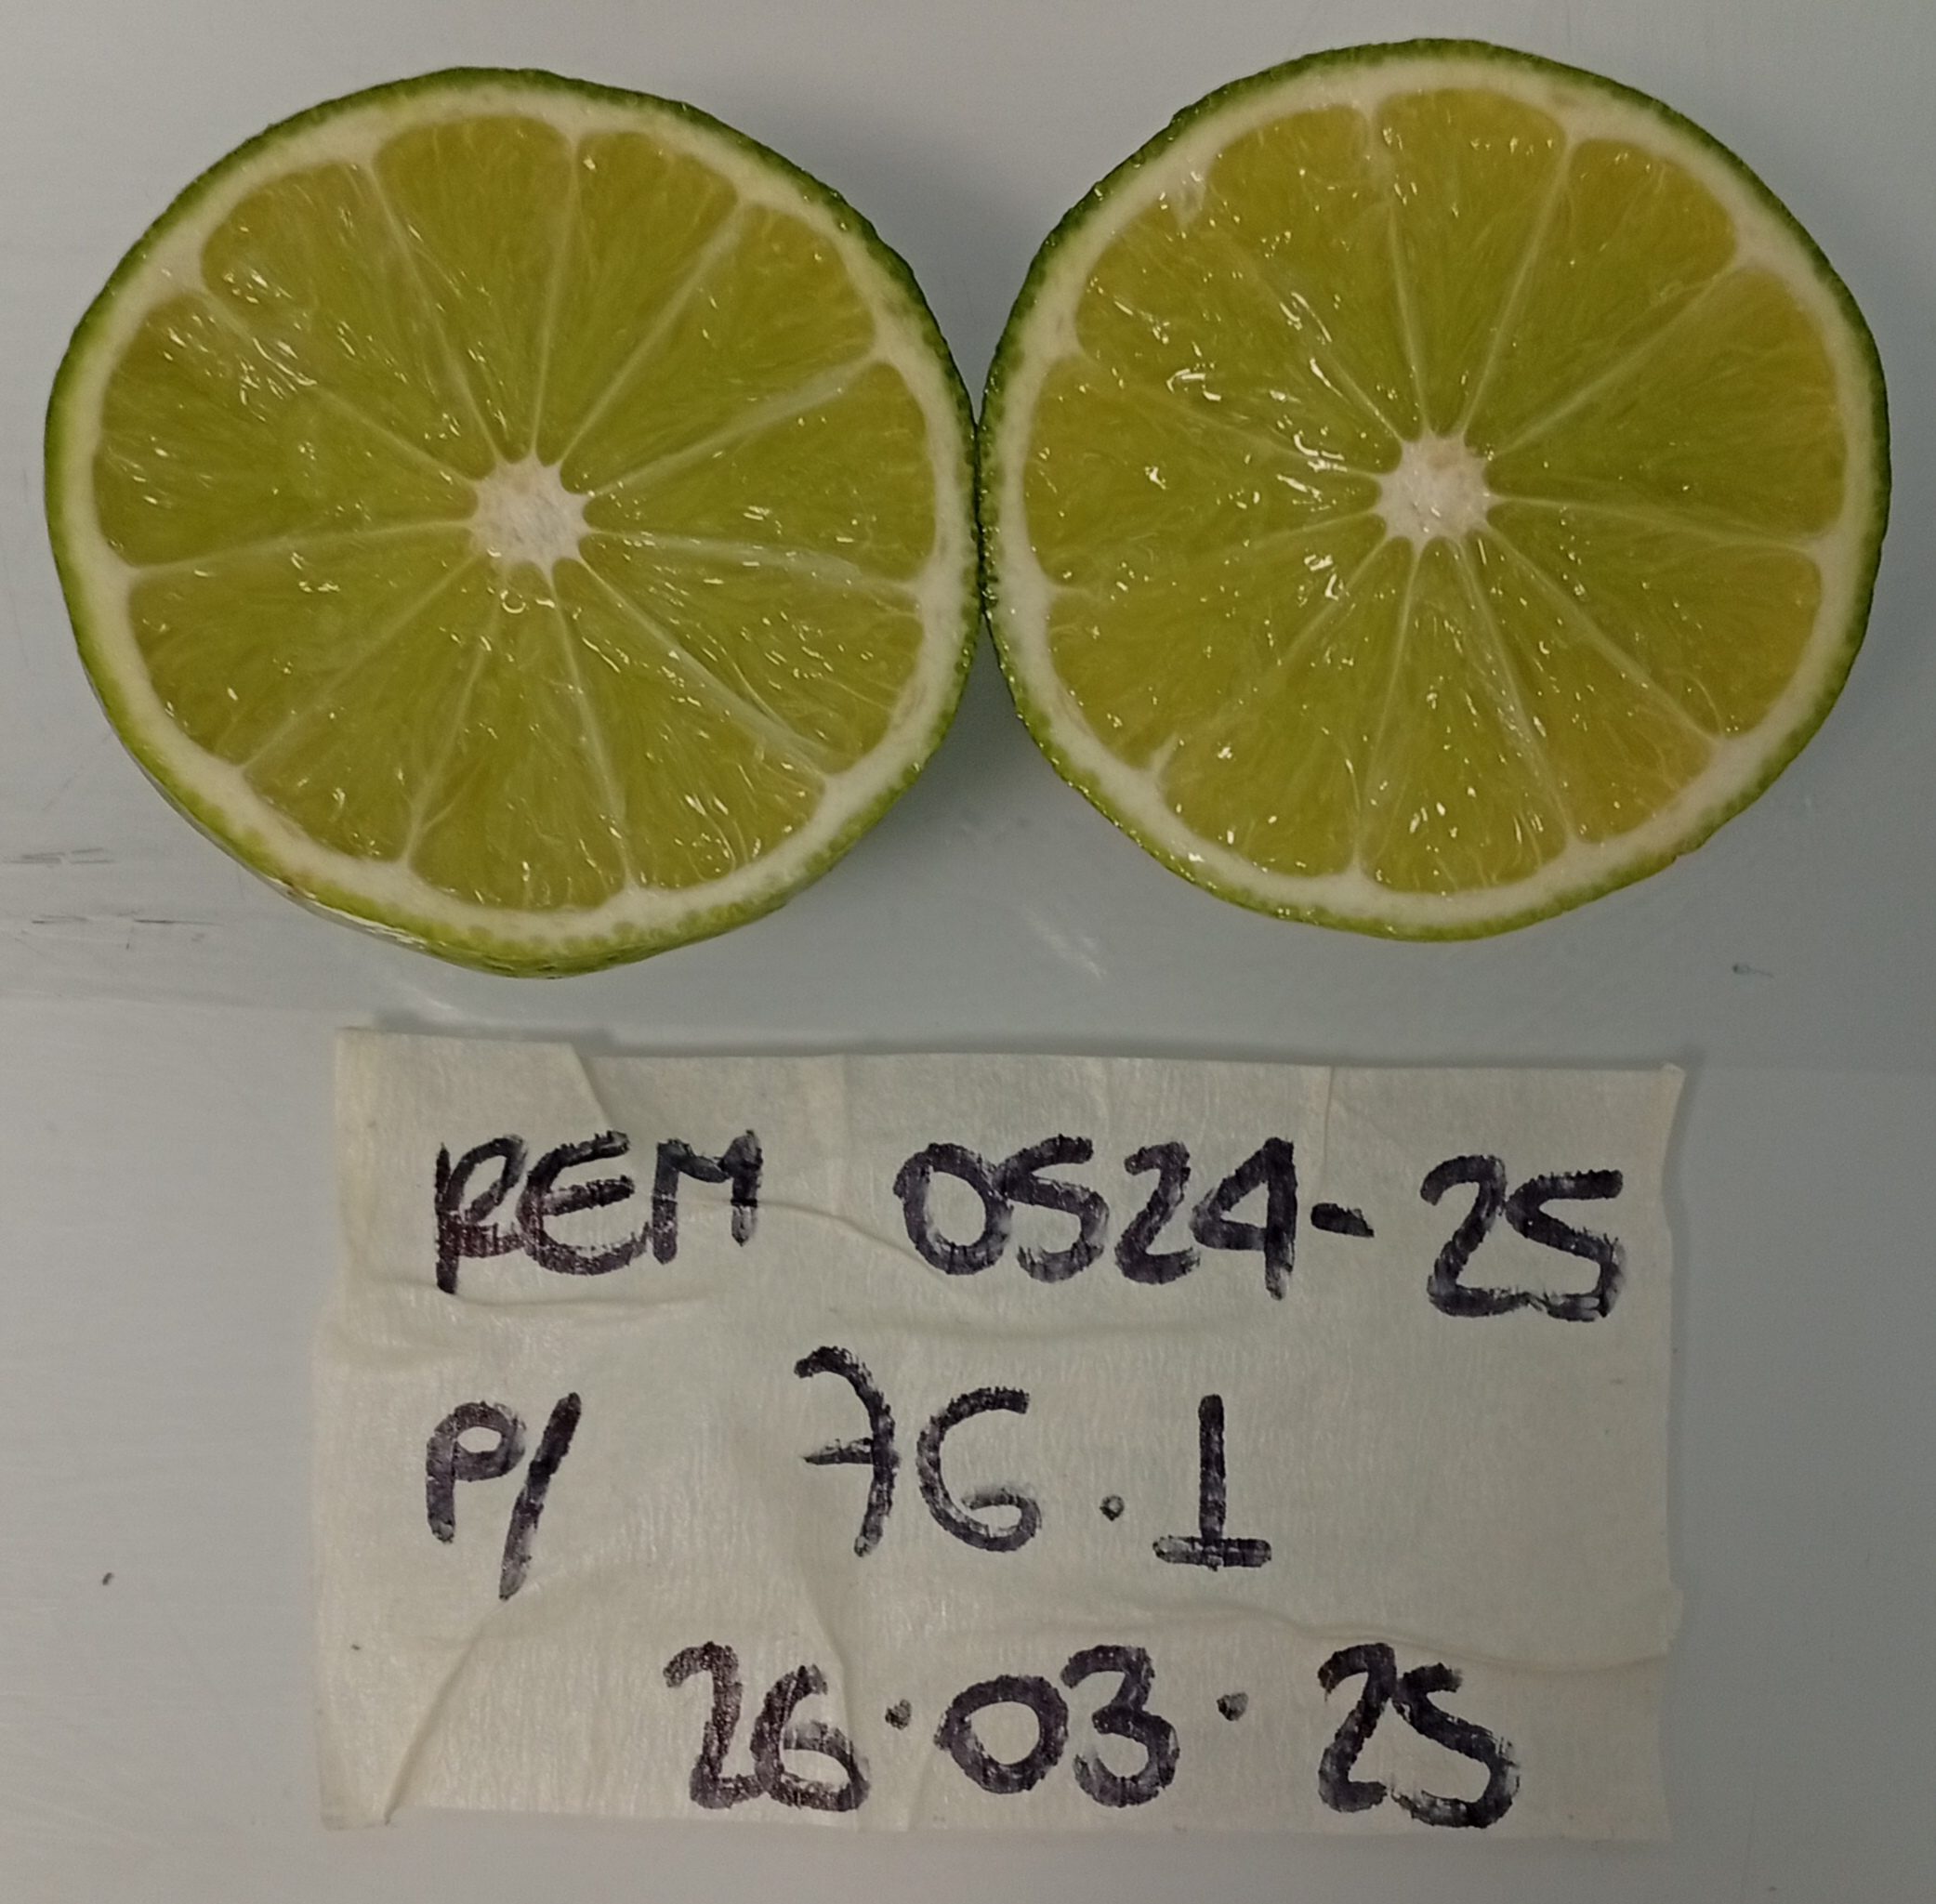 REM 0524-25
P/ 76.1
26.03.25